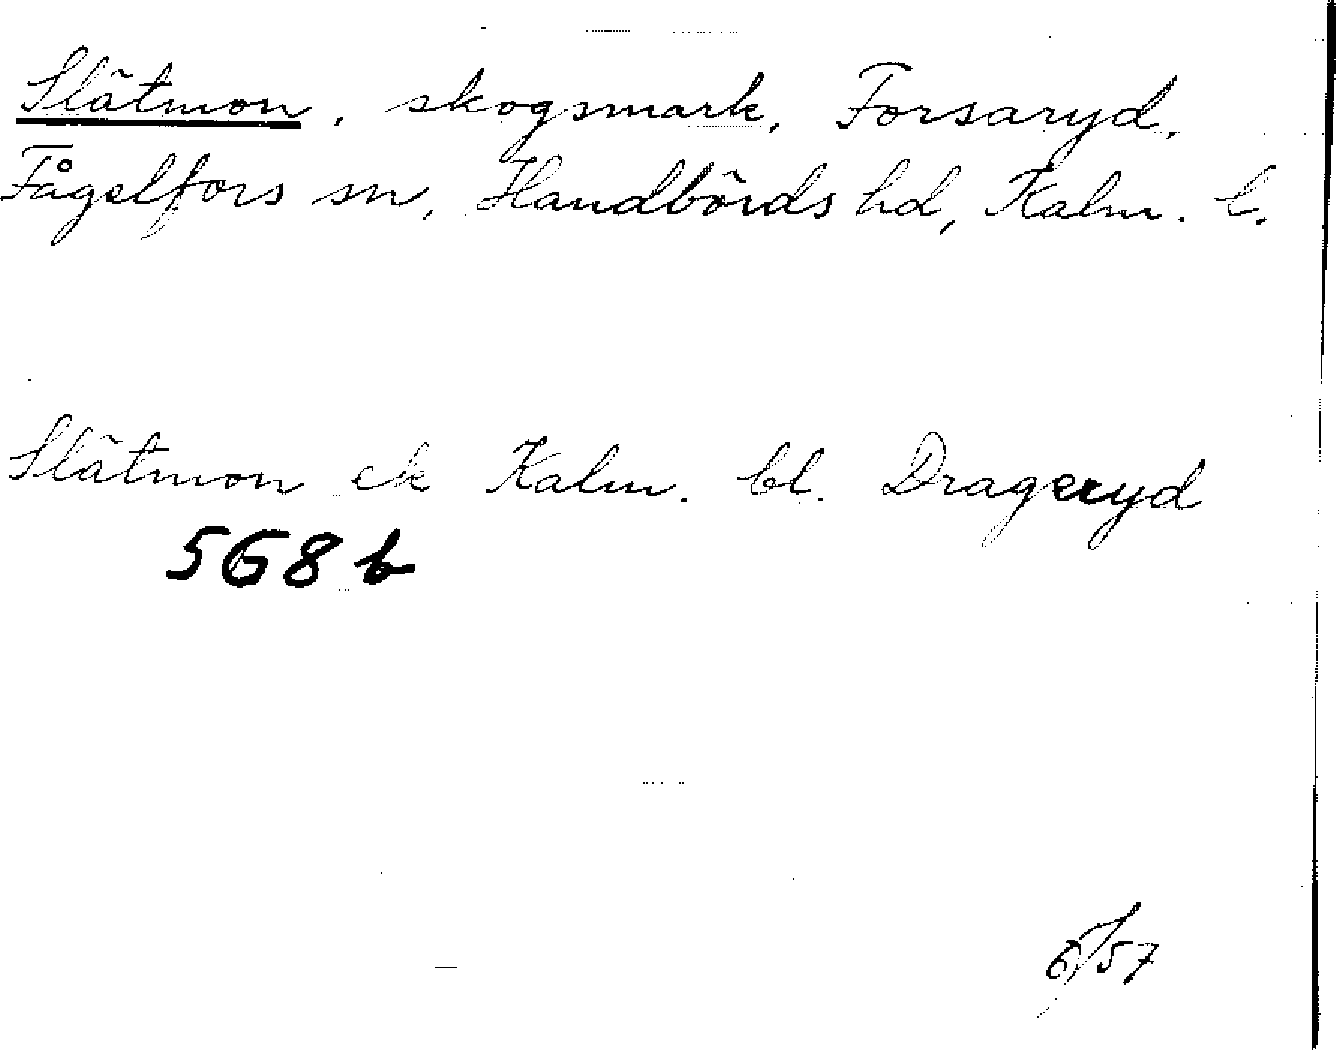 Slätmon, skogsmark, Forsaryd,
Fågelfors sn, Handbörds hd, Kalm. l.
Slätmon ek Kalm. bl. Drageryd
568 b
6/57